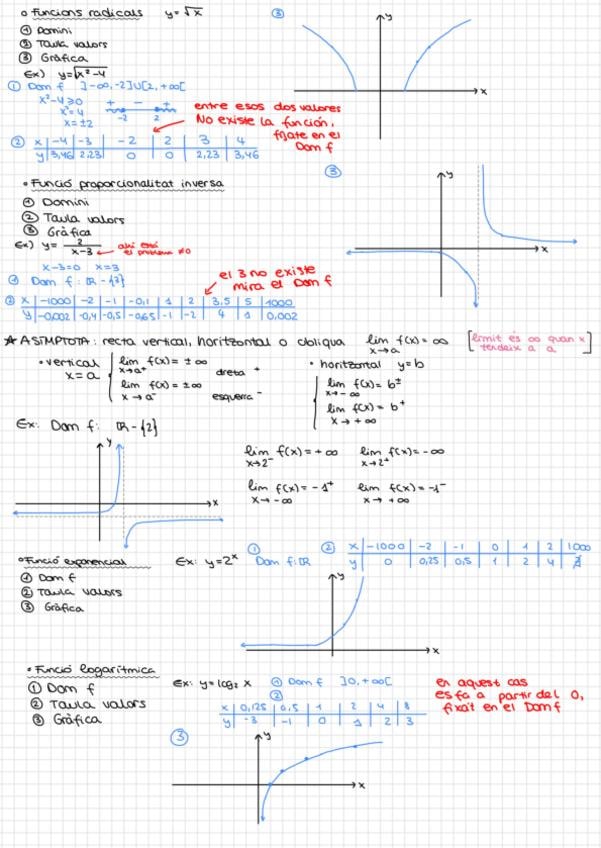 • Funcions radicals y=√x
① Domini
② Taula valors
③ Gràfica
Ex) y=√x²-4
① Dom f ]-∞,-2]U[2,+∞[
x²-4≥0
x²=4
x=±2
+ - +
-2 2
entre esos dos valores
No existe la función,
fíjate en el
Dom f
② x | -4 | -3 | -2 | 2 | 3 | 4
y | 3,46 | 2,23 | 0 | 0 | 2,23 | 3,46
③ y
x
• Funció proporcionalitat inversa
① Domini
② Taula valors
③ Gràfica
Ex) y= 2/x-3 ahí está el problema ≠0
x-3=0 x=3
① Dom f: ℝ-{3}
el 3 no existe
mira el Dom f
② x | -1000 | -2 | -1 | -0,1 | 1 | 2 | 3,5 | 5 | 1000
y | -0,002 | -0,4 | -0,5 | -0,65 | -1 | -2 | 4 | 1 | 0,002
③ y
x
★ ASÍMPTOTA: recta vertical, horitzontal o obliqua lim f(x)=∞ [límit és ∞ quan x
x→a tendeix a a]
• vertical
x=a
lim f(x)=±∞
x→a⁺ dreta +
lim f(x)=±∞
x→a⁻ esquerra -
• horitzontal y=b
lim f(x)=b±
x→-∞
lim f(x)=b⁺
x→+∞
Ex: Dom f: ℝ-{2}
y
x
lim f(x)=+∞ lim f(x)=-∞
x→2⁻ x→2⁺
lim f(x)=-1⁺ lim f(x)=-1⁻
x→-∞ x→+∞
• Funció exponencial Ex: y=2ˣ
① Dom f
② Taula valors
③ Gràfica
① Dom f: ℝ
② x | -1000 | -2 | -1 | 0 | 1 | 2 | 1000
y | 0 | 0,25 | 0,5 | 1 | 2 | 4
y
x
• Funció logarítmica
① Dom f
② Taula valors
③ Gràfica
Ex: y=log₂ x ① Dom f ]0,+∞[
②
x | 0,125 | 0,5 | 1 | 2 | 4 | 8
y | -3 | -1 | 0 | 1 | 2 | 3
en aquest cas
es fa a partir del 0,
fixa't en el Dom f
③ y
x